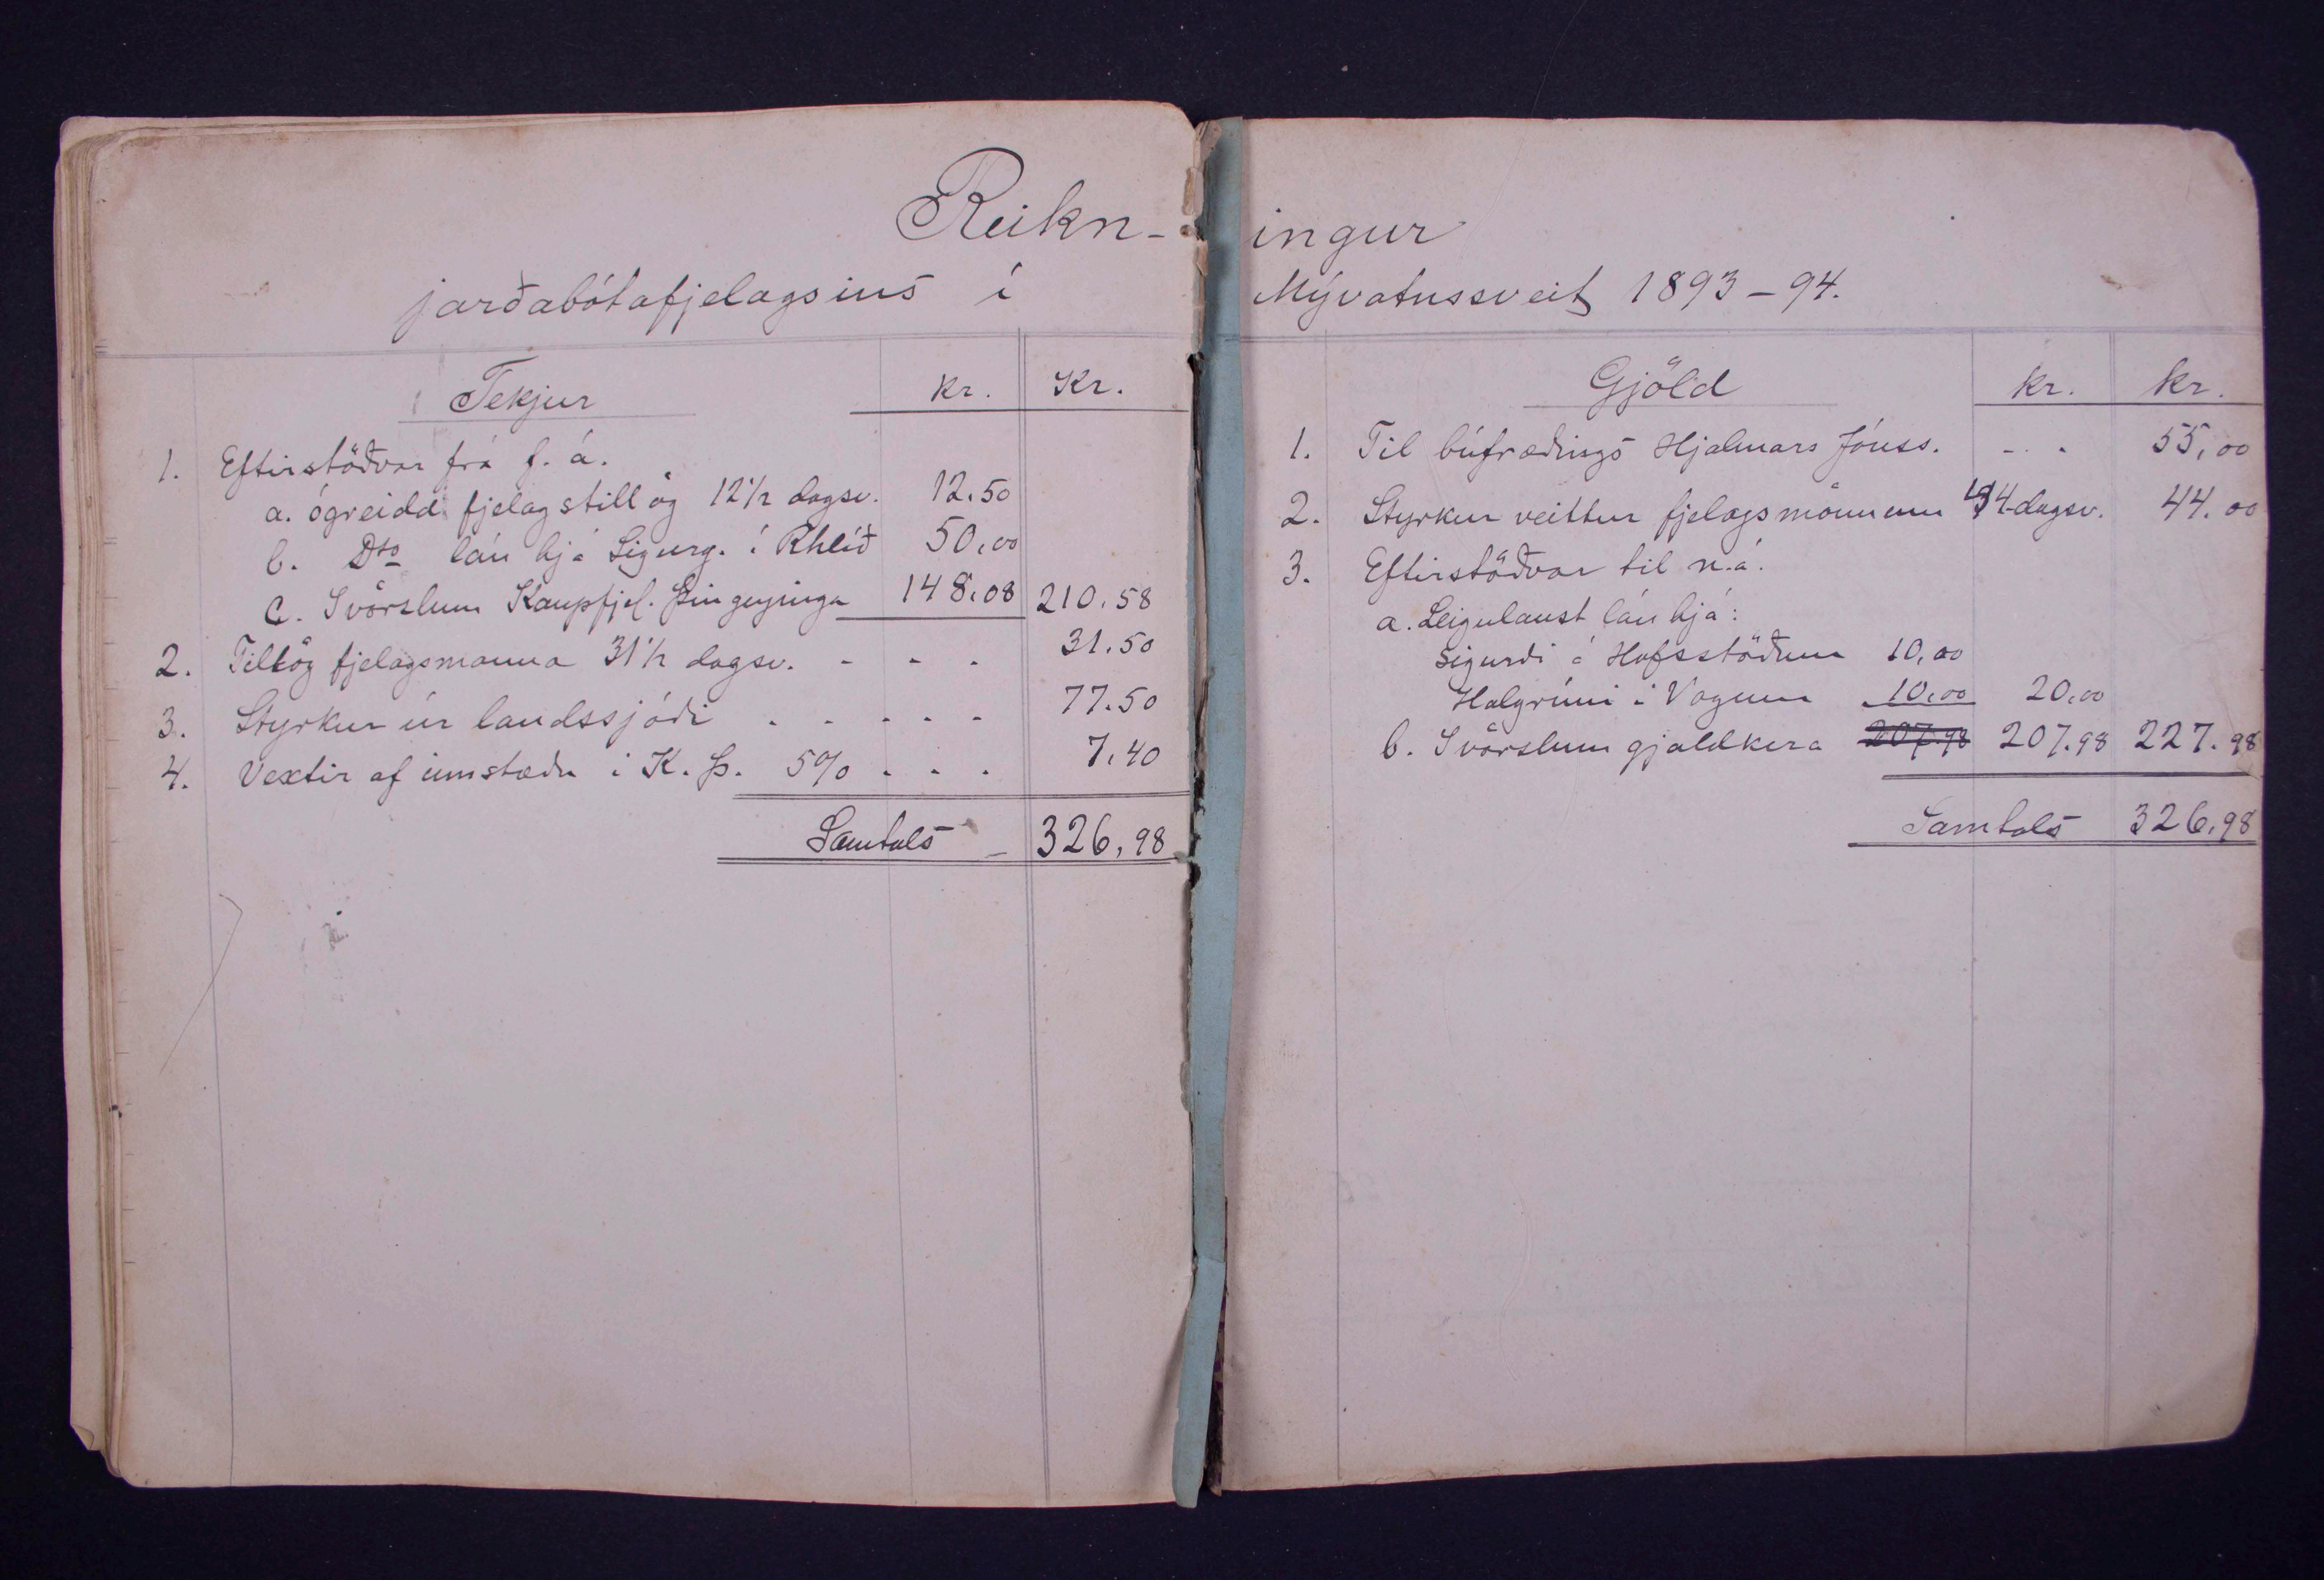 Reikn- ingur
jarðabótafjelagsins í Mývatnssveit 1893-94.
Tekjur kr. Kr.
1. Eftirstöðvar frá f. á.
a. ógreidd fjelagstillög 12 1/2 dagsv. 12.50
b. Dto lán hjá Sigurg. í Rhlíð 50,00
c. Í vörslum Kaupfjel. Þingeyinga 148,08 210,58
2. Tillög fjelagsmanna 31 1/2 dagsv. - - - 31.50
3. Styrkur úr landssjóði - - - - - 77.50
4. Vextir af innstæðu í K. Þ. 5% - - - 7,40
Samtals - 326,98
Gjöld kr. kr.
1. Til búfræðings Hjálmars Jónss. - - - 55,00
2. Styrkur veittur fjelagsmönnum 44 dagsv. 44.00
3. Eftirstöðvar til n.á.
a. Leigulaust lán hjá:
Sigurði á Hofsstöðum 10,00
Halgrími í Vogum 10,00 20,00
b. Í vörslum gjaldkera 207.98 207.98 227.98
Samtals 326,98